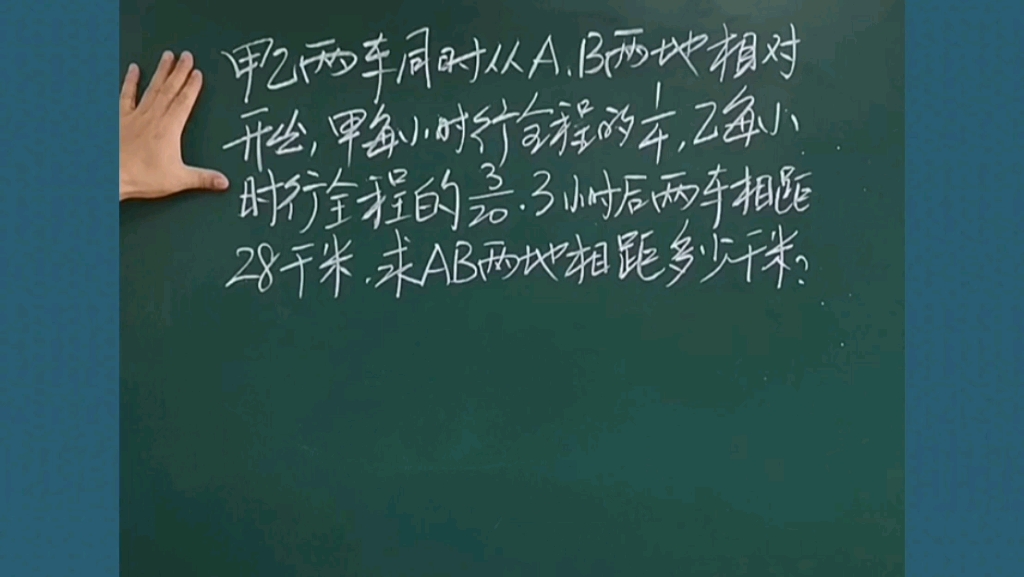 甲乙两车同时从A、B两地相对
开出,甲每小时行全程的1/4,乙每小
时行全程的3/20.3小时后两车相距
28千米.求AB两地相距多少千米?